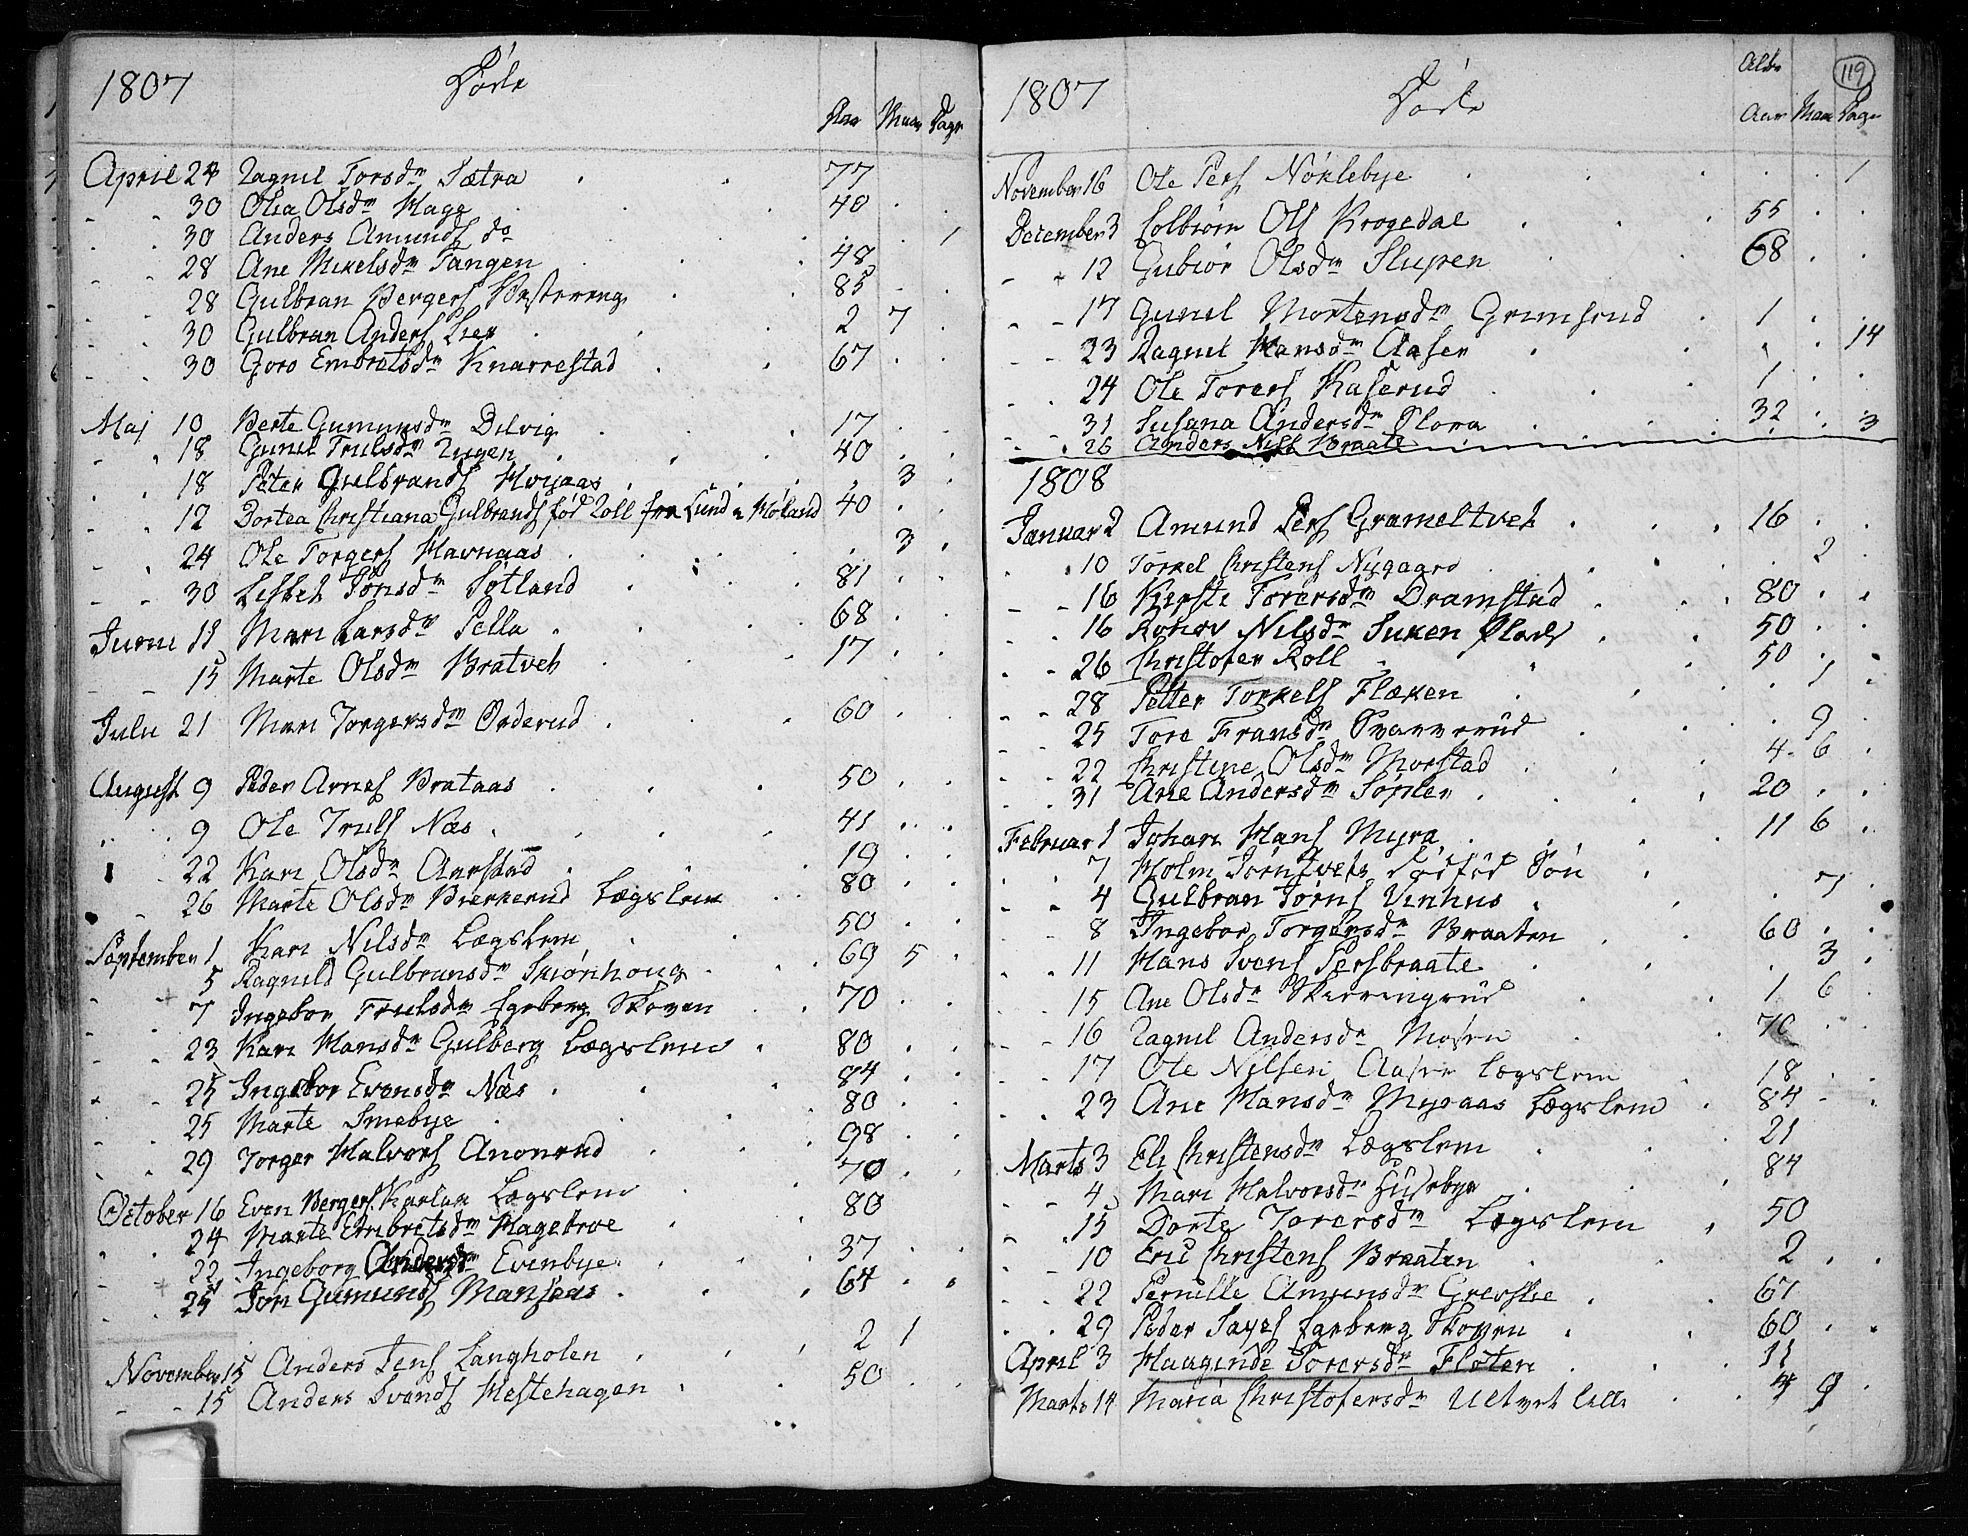 1807 Døde
Aar Maan Dage
April 24 Ragnil Torsdr Sætra 77
30 Olia Olsdr Hage 40
30 Anders Amunds do 1
28 Ane Mikelsdr Tangen 48
28 Gulbran Bergers Westereng 85
30 Gulbran Anders Lier 2 7
30 Goro Embretsdr Knarrestad 67
Maj 10 Berte Gumunsdr Dilvig 17
18 Gunil Trulsdr 40
18 Peter Gulbrands 3
12 Dortea Christiana Gulbrands fød Roll fra Lund i Høland 40
24 Ole Torgers Havnaas 3
30 Jonsdr Søtland 81
Juni 11 Mari Larsdr Pella 68
15 Marte Olsdr Bratvet 17
Juli 21 Mari Torgersdr Orderud 60
August 9 Peder Arnes Brataas 50
9 Ole Truls Næs 41
22 Kari Olsdr Aarstad 19
26 Marte Olsdr Bierkerud Lægslem 80
September 1 Kari Nilsdr Lægslem 50
5 Ragnild Gulbransdr Skiønhoug 69 5
7 Ingebor Trulsdr Egeberg Skoven 70
23 Kari Hansdr Gulberg Lægslem 80
25 Ingebor Evensdr Næs 84
25 Marte Smebye 80
29 Torger Halvors Anonrud 98
October 16 Even Bergers Lægslem 70
24 Marte Embretsdr Hagebroe 80
22 Ingeborg Andersdr Evenbye 37
25 Jon Gumunds Mansaas 64
November 15 Anders Jens Langholen 2 1
15 Anders Svends Hestehagen 50
119
1807 Døde
Alder
Aar Maan Dage
November 16 Ole Pers Nøklebye 1
December 3 Colbiørn Ols Krogedal 55
12 Gubiør Olsdr Slupen 68
17 Gunil Mortensdr Grimsrud 1
23 Ragnil Hansdr Aasen 14
24 Ole Torers Kaserud 1
31 Susana Andersdr Flora 32
26 Anders Nils Braate 3
1808
Januar 2 Amund Pers Grameltvet 16
10 Torkel Christens Nygaard 2
16 Kirste Torersdr Dramstad 80
16 Ronov Nilsdr Suken Plads 50
26 Christofer Roll 50
28 Petter Torkels Flæken 1
25 Tore Fransdr 9
22 Christine Olsdr Morstad 4 6
31 Ane Andersdr Soplen 20
Februar 1 Johan Hans Myra 11 6
7 Holm Jørntvets dødfød Søn
4 Gulbran Jørns Vinhus 7
8 Ingebor Torgersdr Braaten 60
11 Hans Svens Persbraate 3
15 Ane Olsdr Skierringrud 1 6
16 Ragnil Andersdr Mosen 70
17 Ole Nilsen Aasen Lægslem 18
23 Ane Hansdr Myraas Lægslem 84
Marts 3 Eli Christensdr Lægslem 21
4 Mari Halvorsdr Husebye 84
15 Dorte Torersdr Lægslem 50
10 Eric Christens Braaten 2
22 Pernille Amunsdr Grevslie 67
29 Peder Egeberg Skoven 60
April 3 Haaginde Torersdr Fløten 11
Marts 14 Maria Christofersdr Ultvet lille 4 9